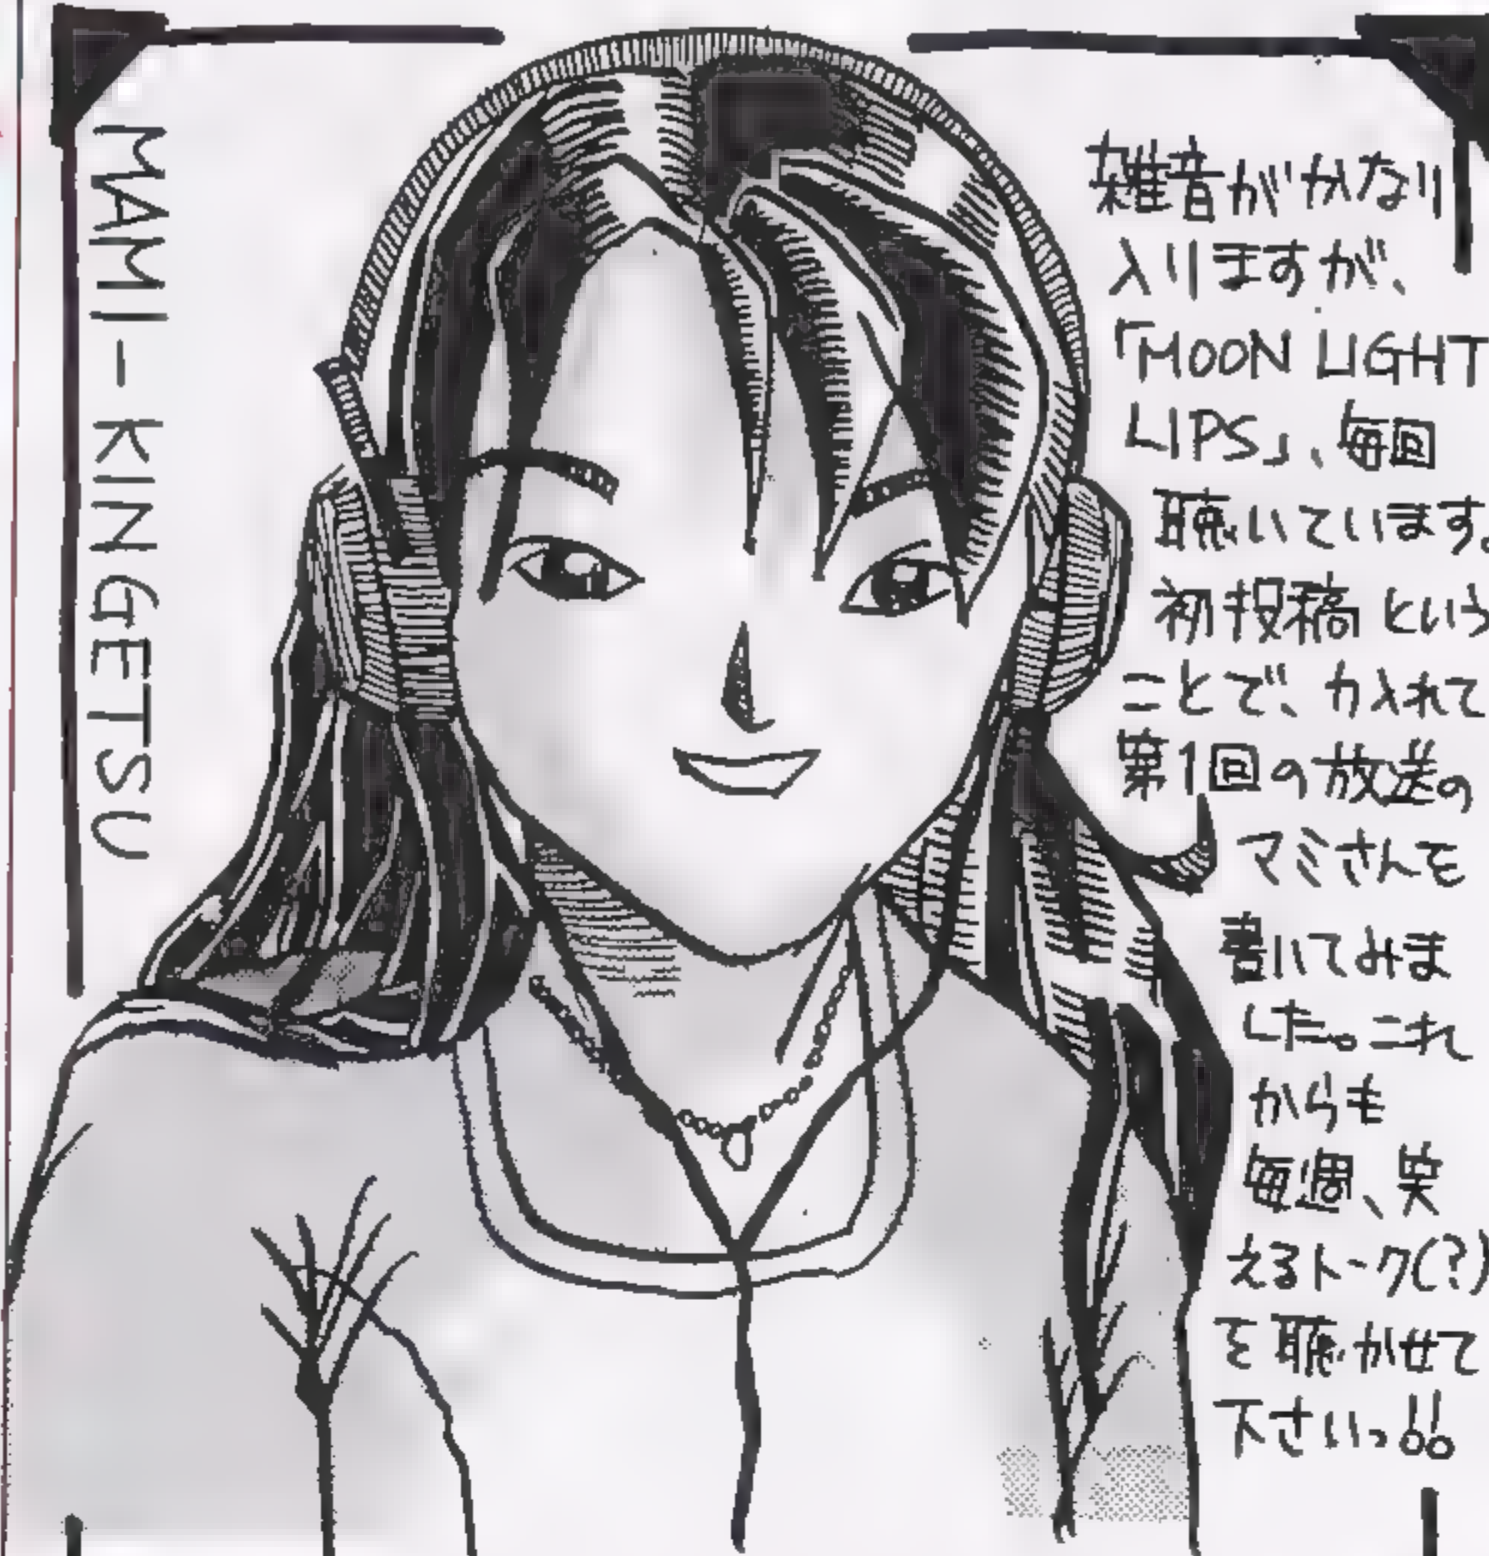 MAMI-KINGETSU
雑音がかなり
入りますが、
「MOON LIGHT
LIPS」、毎回
聴いています。
初投稿という
ことで、力入れて
第1回の放送の
マミさんを
書いてみま
した。これ
からも
毎週、笑
えるトーク(?)
を聴かせて
下さいっ!!